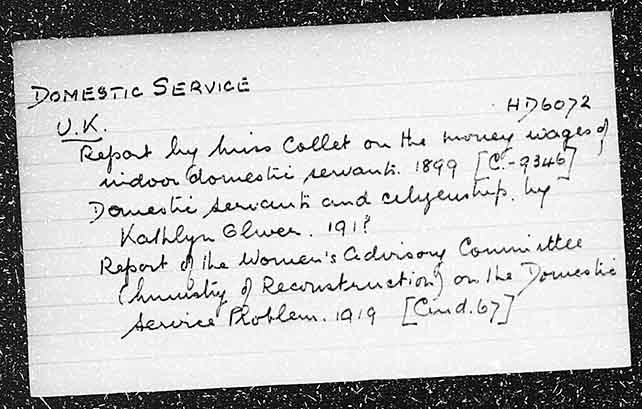 DOMESTIC SERVICE
HD6072
U.K.
Report by Miss Collet on the money wages of
indoor domestic servants. 1899 [C.-9346]
Domestic servants and citizenship. by
Kathlyn Oliver. 191?
Report of the Women's Advisory Committee
(Ministry of Reconstruction) on the Domestic
Service Problem. 1919 [Cmd.67]